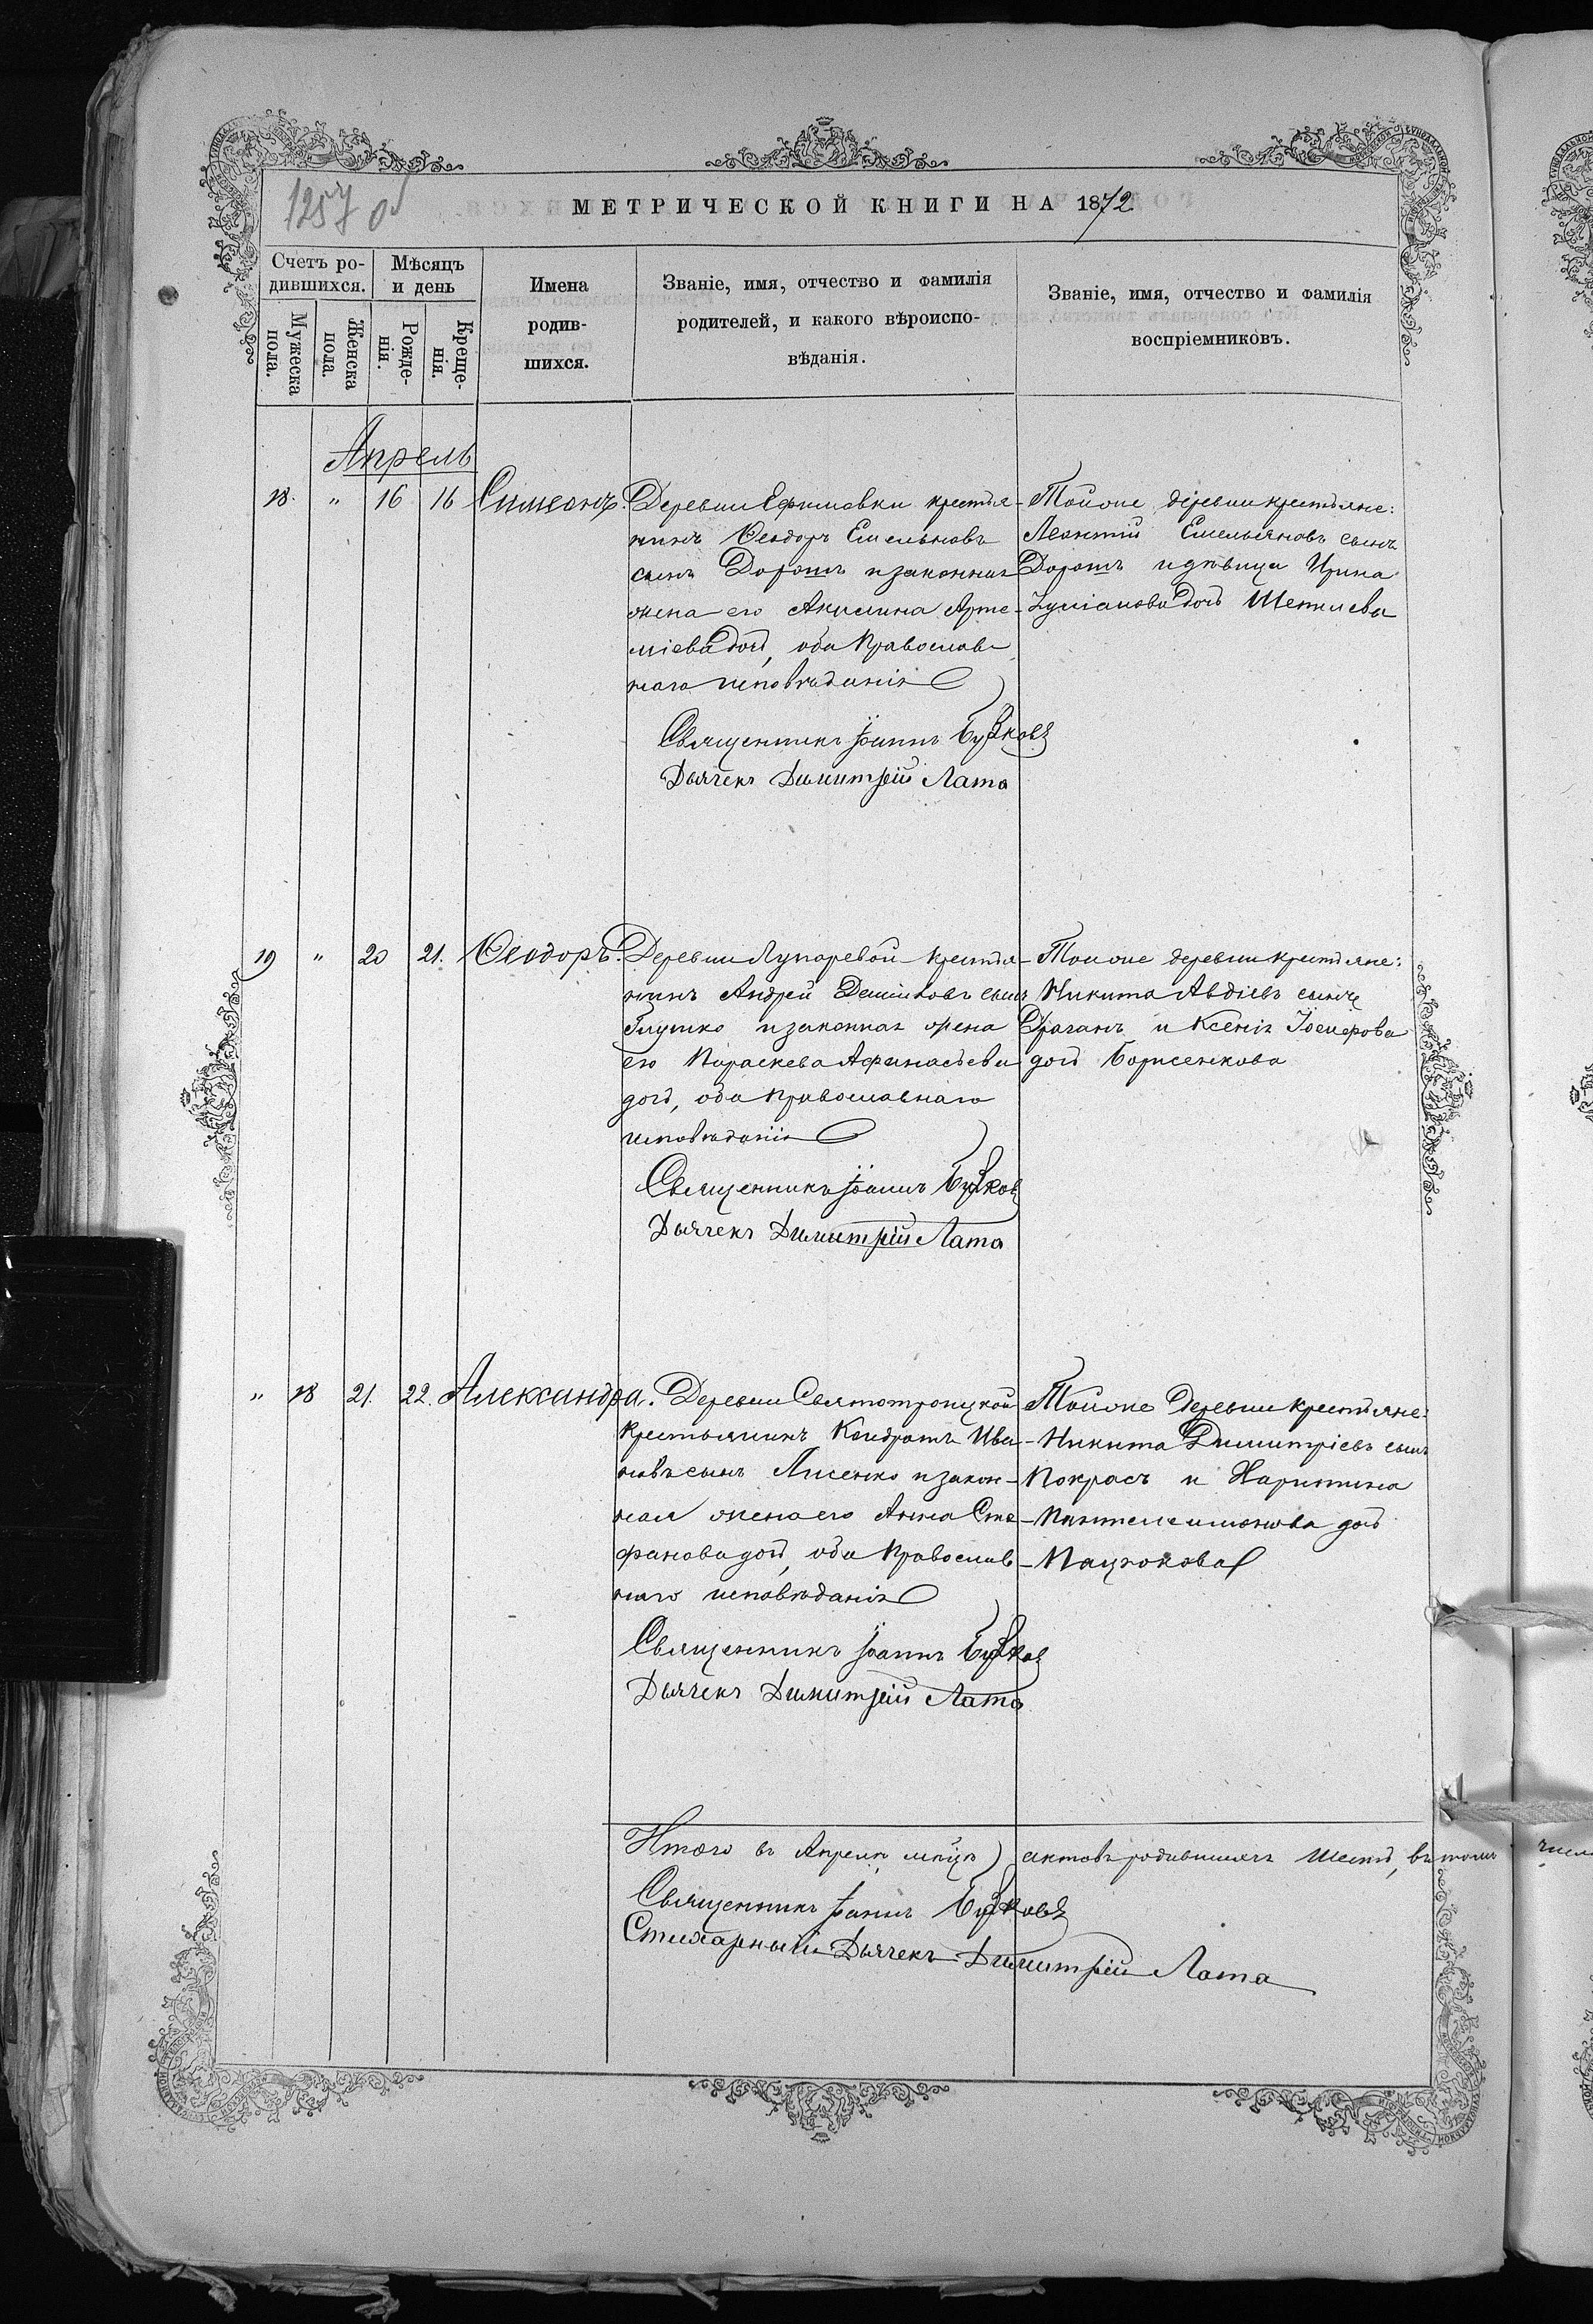 1257 об
МЕТРИЧЕСКОЙ КНИГИ НА 1872
Счетъ ро-
дившихся.
Мѣсяцъ
и день
Мужеска
пола.
Женска
пола.
Рожде-
нія.
Креще-
нія.
Имена
родив-
шихся.
Званіе, имя, отчество и фамилія
родителей, и какого вѣроиспо-
вѣданія.
Званіе, имя, отчество и фамилія
воспріемниковъ.
Апрель
18. " 16 16 Симеонъ.
Деревни Ефимовки крестья-
нинъ Ѳеодоръ Емельновъ
сынъ Дорошъ и законная
жена его Акилина Арте-
міева дочь, оба Православ-
наго исповѣданія
Священникъ Іоаннъ
Дьячекъ Димитрій Лата
Тойже деревни крестьяне:
Леонтій Емельяновъ сынъ
Дорошъ и дѣвица Ирина
дочь
19 " 20 21. Ѳеодоръ.
Деревни Лупаревой крестья-
нинъ Андрей сынъ
Глушко и законная жена
его Параскева Афанасьева
дочь, оба православнаго
исповѣданія
Священникъ Іоаннъ
Дьячекъ Димитрій Лата
Тойже деревни крестьяне:
Никита Авдіевъ сынъ
Драганъ и Ксенія Іосифова
дочь Борисенкова
" 18 21. 22. Александра.
Деревни Святотроицкой
крестьянинъ Кондратъ Ива-
новъ сынъ Лисенко и закон-
ная жена его Анна Сте-
фанова дочь, оба Православ-
наго исповѣданія
Священникъ Іоаннъ
Дьячекъ Димитрій Лата
Тойже деревни крестьяне:
Никита Димитріевъ сынъ
Покрасъ и Харитина
Пантелеимонова дочь
Пацюкова
Итого въ Апрелѣ м-цѣ актовъ родившихся шесть, въ томъ
Священникъ Іоаннъ
Стихарный Дьячекъ Димитрій Лата